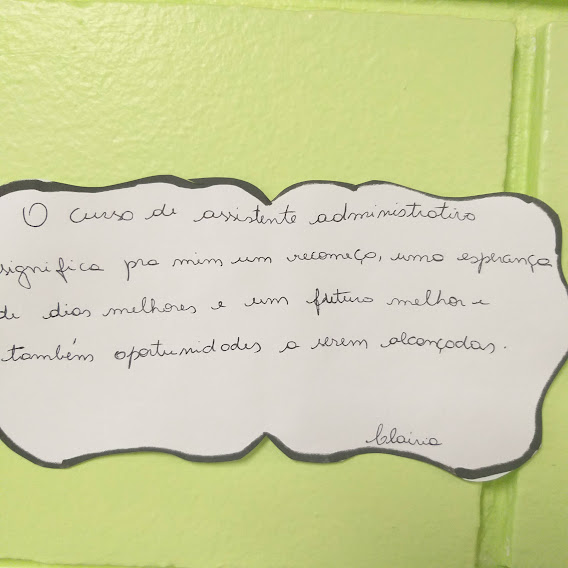 O curso de assistente administrativo
significa pra mim um recomeço, uma esperança
de dias melhores e um futuro melhor e
também oportunidades a serem alcançadas.
Clairia